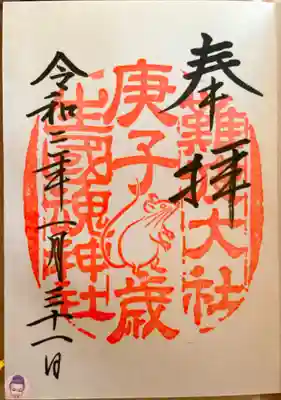 奉拝
難波大社
庚子歳
生國魂神社
令和二年一月三十一日